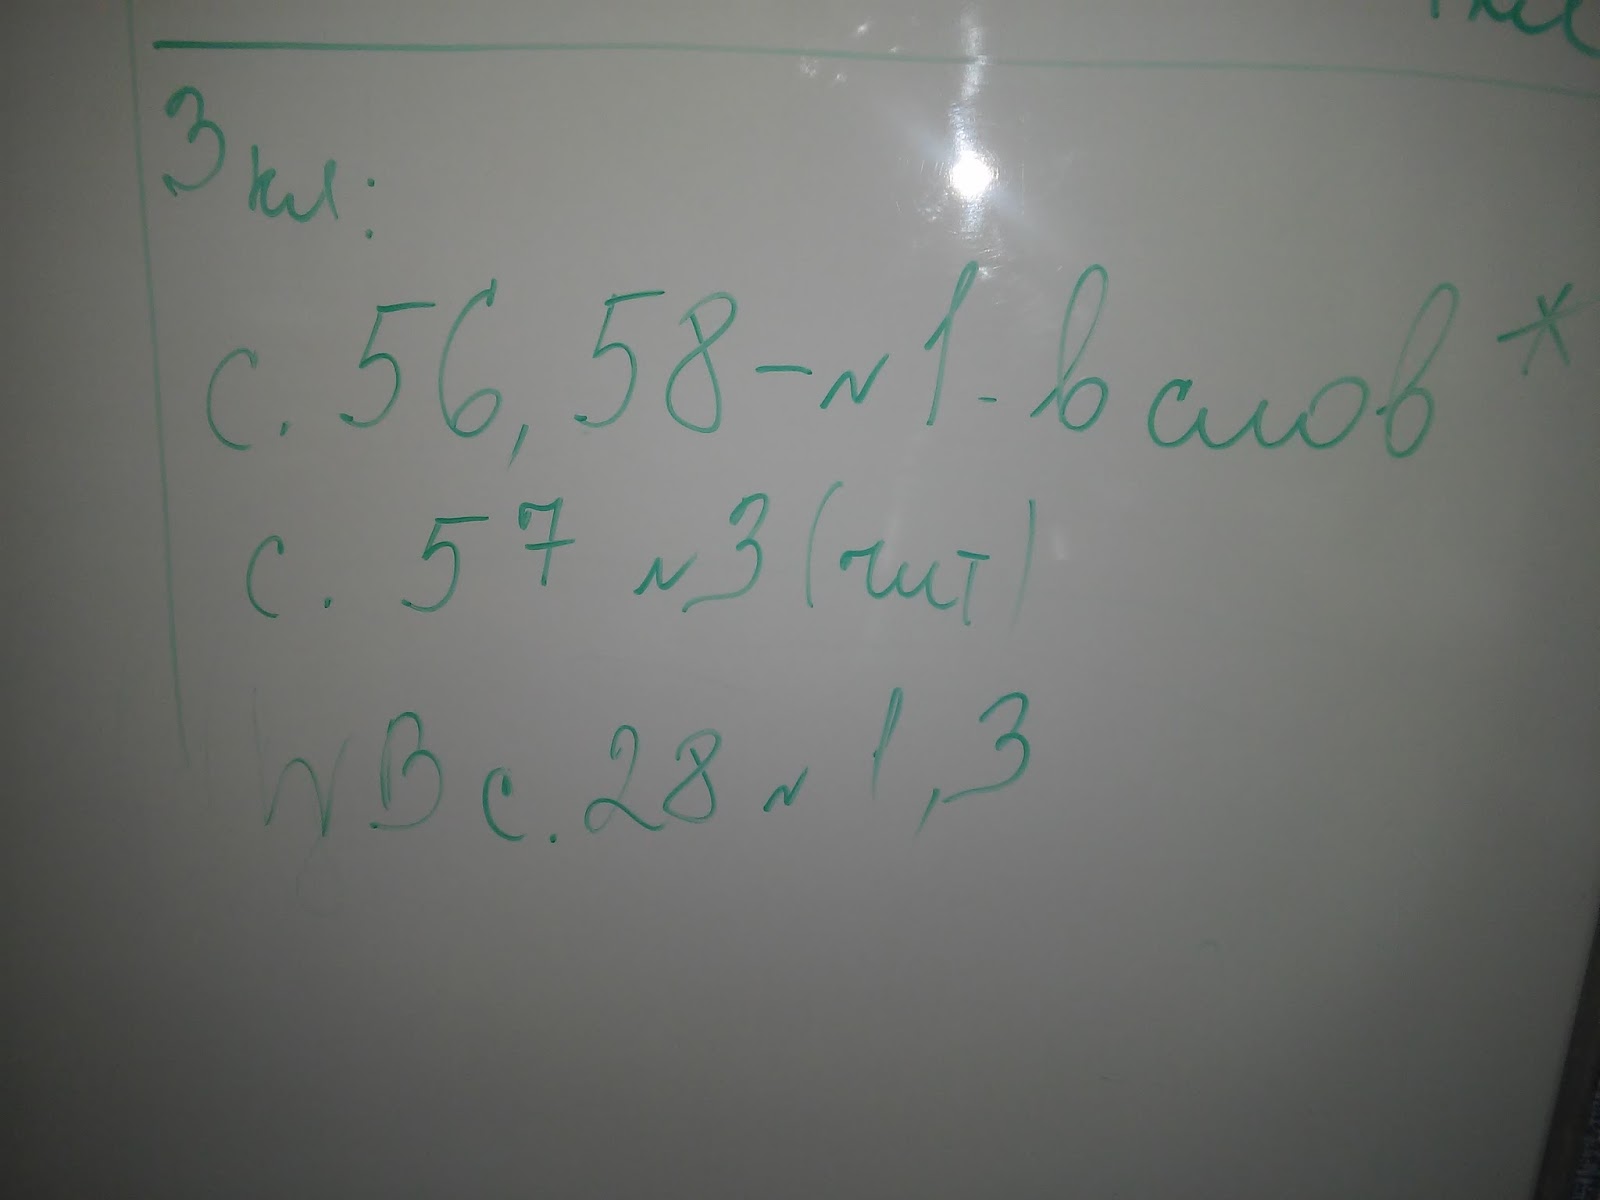 3 кл:
с. 56, 58 - N 1 - в слов *
с. 57 N 3 (чит)
WB с. 28 N 1, 3